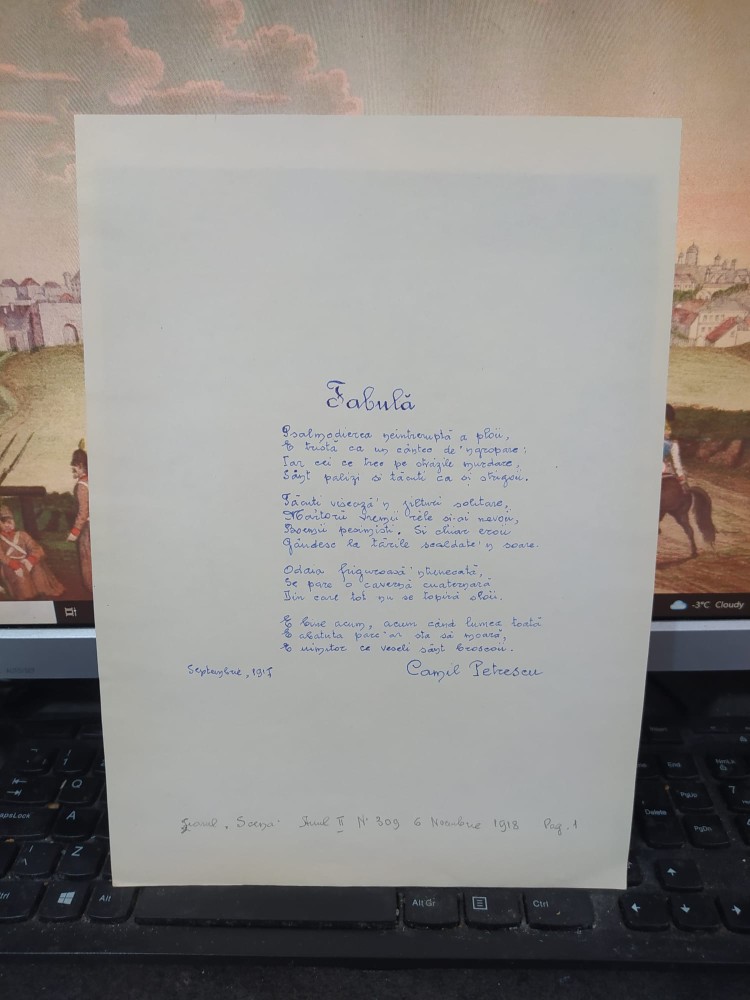 Fabulă
Psalmodierea neintreruptă a ploii,
E tristă ca un cântec de'ngropare;
Iar cei ce trec pe străzile murdare,
Sânt palizi si tăcuti ca si strigoii.
Tăcuti visează'n jilturi solitare,
Martorii vremii rele si-ai nevoii,
Boemii pesimisti. Si chiar eroii
Gândesc la tările scaldate'n soare.
Odaia friguroasă'ntunecată,
Se pare o cavernă cuaternară
Din care tot nu se topiră sloii.
E bine acum, acum când lumea toată
E abatuta parc'ar sta să moară,
E uimitor ce veseli sânt broscoii.
Septembrie, 1917
Camil Petrescu
Ziarul „Scena" Anul II Nº 309 6 Noembrie 1918 Pag. 1
-3°C Cloudy
End
NumLk
Q
CapsLock
A
Delete
PgUp
PgDn
Z
Ctrl
Alt
Alt Gr
Ctrl